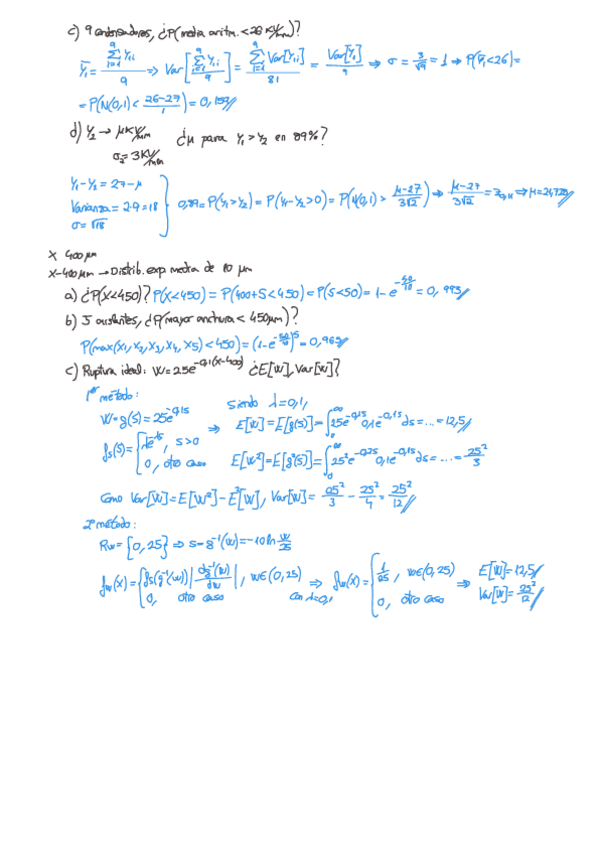 c) 9 condensadores, ¿P(media aritm. < 26 KV/mm)?
Ȳ₁ = Σ⁹ᵢ₌₁ Y₁ᵢ / 9 ⇒ Var[Σ⁹ᵢ₌₁ Y₁ᵢ / 9] = Σ⁹ᵢ₌₁ Var[Y₁ᵢ] / 81 = Var[Y₁] / 9 ⇒ σ = 3/√9 = 1 ⇒ P(Ȳ₁<26) =
= P(N(0,1) < (26-27)/1) = 0,159//
d) Y₂ → μ KV/mm ¿μ para Y₁ > Y₂ en 89%?
σ₂ = 3 KV/mm
Y₁-Y₂ = 27-μ
Varianza = 2·9 = 18 } 0,89 = P(Y₁>Y₂) = P(Y₁-Y₂>0) = P(N(0,1) > (μ-27)/(3√2)) ⇒ (μ-27)/(3√2) = z₀,₁₁ ⇒ μ = 21,72//
σ = √18
X 400 μm
X-400 μm → Distrib. exp media de 10 μm
a) ¿P(X<450)? P(X<450) = P(400+S<450) = P(S<50) = 1 - e^(-50/10) = 0,993//
b) 5 aislantes, ¿P(mayor anchura < 450μm)?
P(max(X₁, X₂, X₃, X₄, X₅) < 450) = (1-e^(-50/10))⁵ = 0,967//
c) Ruptura ideal: W = 25e^(-0,1(X-400)) ¿E[W], Var[W]?
1er método:
W = g(S) = 25e^(-0,1S) siendo λ=0,1,
⇒ E[W] = E[g(S)] = ∫₀^∞ 25e^(-0,1S) 0,1e^(-0,1S) ds = ... = 12,5//
fs(S) = { λe^(-λS), S>0
0, otro caso E[W²] = E[g²(S)] = ∫₀^∞ 25²e^(-0,2S) 0,1e^(-0,1S) ds = ... = 25²/3
Como Var[W] = E[W²] - E²[W], Var[W] = 25²/3 - 25²/4 = 25²/12//
2º método:
Rw = {0,25} ⇒ S = g⁻¹(W) = -10 ln W/25
fw(x) = { fs(g⁻¹(w)) |dg⁻¹(w)/dw|, w∈(0,25) ⇒ fw(x) = { 1/25, w∈(0,25) ⇒ E[W] = 12,5//
0, otro caso con λ=0,1 0, otro caso Var[W] = 25²/12//